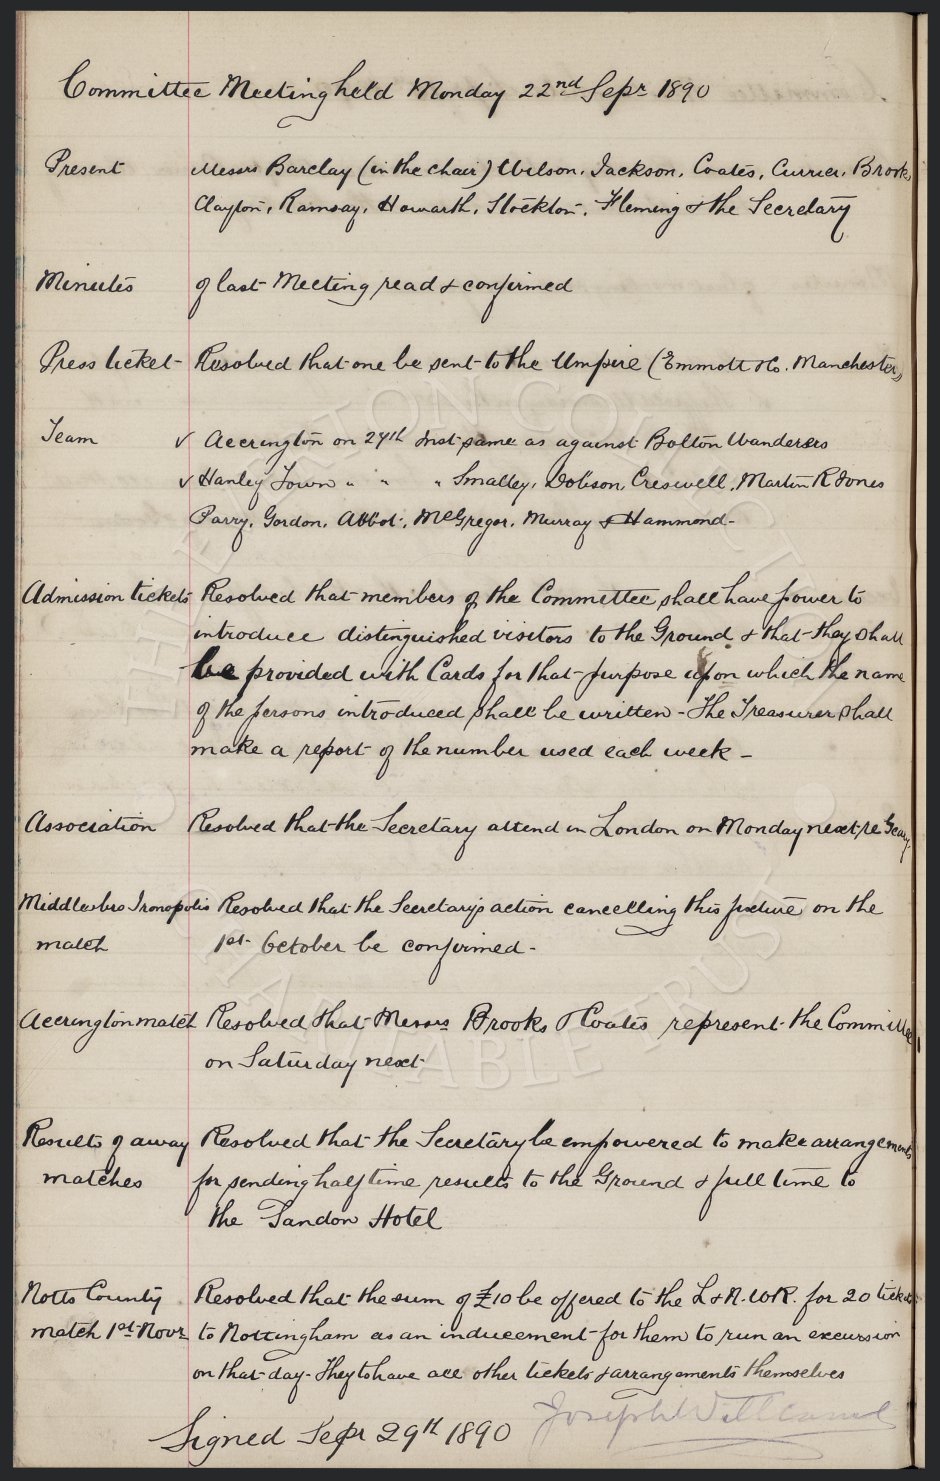 Committee Meeting held Monday 22nd Sepr 1890
Present Messrs Barclay (in the chair) Wilson, Jackson, Coates, Currier, Brooks,
Clayton, Ramsay, Howarth, Stockton, Fleming & the Secretary
Minutes of last Meeting read & confirmed
Press ticket - Resolved that one be sent to the Umpire (Emmott & Co. Manchester)
Team ✓ Accrington on 27th Inst same as against Bolton Wanderers
✓ Hanley Town " " " Smalley, Dobson, Creswell, Martin R Jones
Parry, Gordon, Abbot, McGregor, Murray & Hammond -
Admission tickets Resolved that members of the Committee shall have power to
introduce distinguished visitors to the Ground & that they shall
be provided with Cards for that purpose upon which the name
of the persons introduced shall be written - The Treasurer shall
make a report of the number used each week -
Association Resolved that the Secretary attend in London on Monday next re Geary
Middlesbro Ironopolis Resolved that the Secretary's action cancelling this fixture on the
match 1st October be confirmed -
Accrington match Resolved that Messrs Brooks & Coates represent the Committee
on Saturday next
Results of away Resolved that the Secretary be empowered to make arrangements
matches for sending half time results to the Ground & full time to
the Sandon Hotel
Notts County Resolved that the sum of £10 be offered to the L & N. W R. for 20 tickets
match 1st Novr to Nottingham as an inducement for them to run an excursion
on that day - They to have all other tickets & arrangements themselves
Signed Sepr 29th 1890 Joseph Williams
THE EVERTON COLLECTION
CHARITABLE TRUST